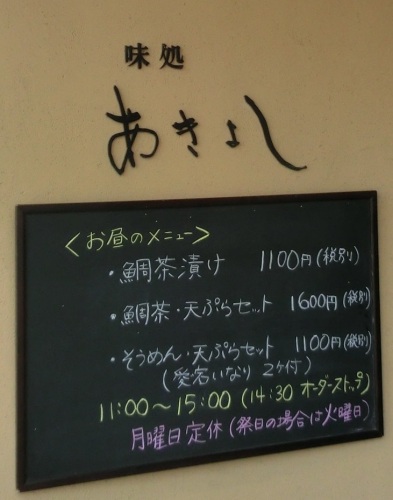 味処
あきよし
<お昼のメニュー>
・鯛茶漬け 1100円(税別)
・鯛茶・天ぷらセット 1600円(税別)
・そうめん・天ぷらセット 1100円(税別)
(愛宕いなり 2ヶ付)
11:00～15:00 (14:30 オーダーストップ)
月曜日定休(祭日の場合は火曜日)